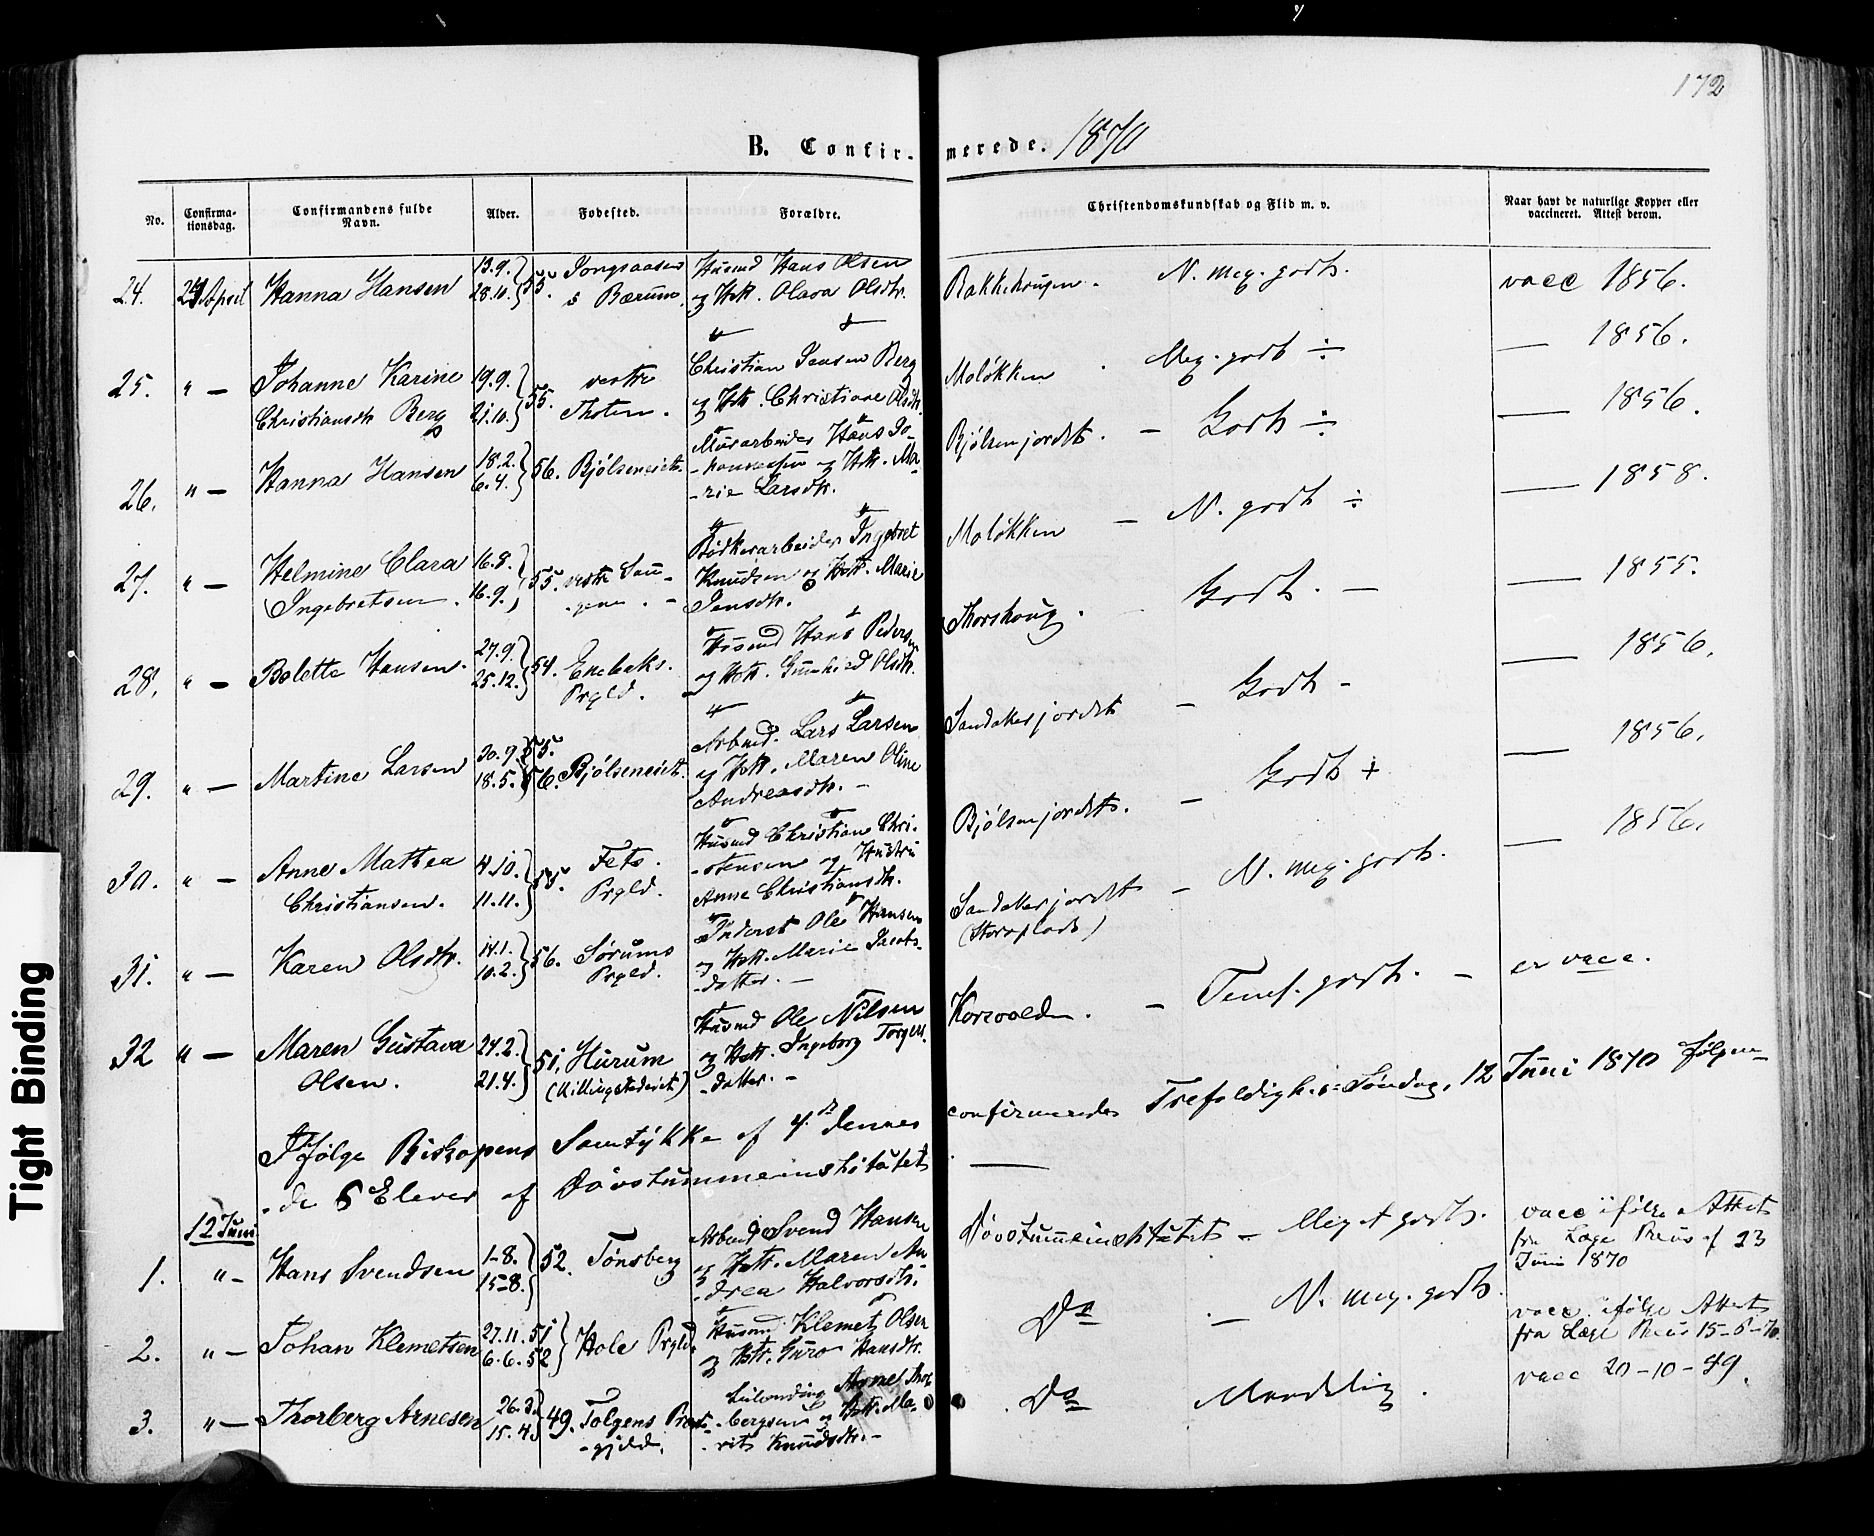 172
B. Confirmerede. 1870
No.
Confirmationsdag.
Confirmandens fulde Navn.
Alder.
Fødested.
Forældre.
Christendomskundskab og Flid m. v.
Naar havt de naturlige Kopper eller vaccineret. Attest derom.
24. 24 April Hanna Hansen 13.9. 28.10. 55. Jongsaasen i Bærum. Husmd Hans Olsen og Hstr. Olava Olsdtr. Bakkehaugen. N. meg. godt. vacc 1856.
25. " — Johanne Karine Christiansdtr Berg 19.9. 21.10. 55. vestre Thoten. Christian Jensen Berg og Hstr. Christiane Olsdtr. Moløkken. Meg. godt ÷ — 1856.
26. " — Hanna Hansen 18.2. 6.4. 56. Bjølseneiet. Murarbeider Hans Johannesen og Hstr. Marie Larsdtr. Bjølsenjordet. — Godt ÷ — 1856.
27. " — Helmine Clara Ingebretsen. 16.8. 16.9. 55. vestre Bødkerarbeider Ingebret Knudsen og Hstr. Marie Jensdtr. Moløkken — N. godt ÷ — 1858.
28. " — Bolette Hansen. 27.9. 25.12. 54. Enebaks Prgld. Husmd Hans Pedersen og Hstr. Gunhild Olsdtr. Thorshaug. Godt. — — 1855.
29. " — Martine Larsen 30.9. 55. 18.5. 56. Bjølseneiet. Arbmd. Lars Larsen og Hstr. Maren Oline Andreasdtr. — Sandakerjordet — Godt — — 1856.
30. " — Anne Mathea Christiansen. 4.10. 11.11. 55. Fets Prgld. Husmd Christian Christensen og Hustru Anne Christiansdtr. Bjølsenjordet. — Godt + — 1856.
31. " — Karen Olsdtr. 14.1. 10.2. 56. Sørums Prgld. Inderst Ole Hansen og Hstr. Marie Jacobsdatter. — Sandakerjordet — N. meg. godt. — 1856.
32 " — Maren Gustava Olsen. 24.2. 21.4. 51. Hurum Husmd Ole Nilsen og Hstr. Ingeborg Torgersdatter. — Korsvolden. — Temf. godt. — er vacc.
Ifølge Biskopens Samtykke af 4de dennes confirmeredes Trefoldigh.s-Søndag, 12 Juni 1870 følgende 6 Elever af Døvstummeinstitutet —
12 Juni
1. " — Hans Svendsen 1-8. 15-8. 52. Tønsberg Arbmd Svend Hansen og Hstr. Maren Andrea Halvorsdtr. Døvstummeinstitutet — Meget godt. vacc ifølge Attest fra Læge Preus af 23 Juni 1870
2. " — Johan Klemetsen 27.11.51 6.6.52 Hole Prgld. Husmd Klemet Olsen og Hstr. Guro Hansdtr. Do — N. meg. godt. vacc. ifølge Attest fra Læge Preus 15-6-70
3. " — Thorberg Arnesen 26.3. 15.4. 49. Tolgens Præstegjeld. Leilænding Arne Thorbergsen og Hstr. Marit Knudsdtr. — Do Maadelig. vacc 20-10-49.
Tight Binding